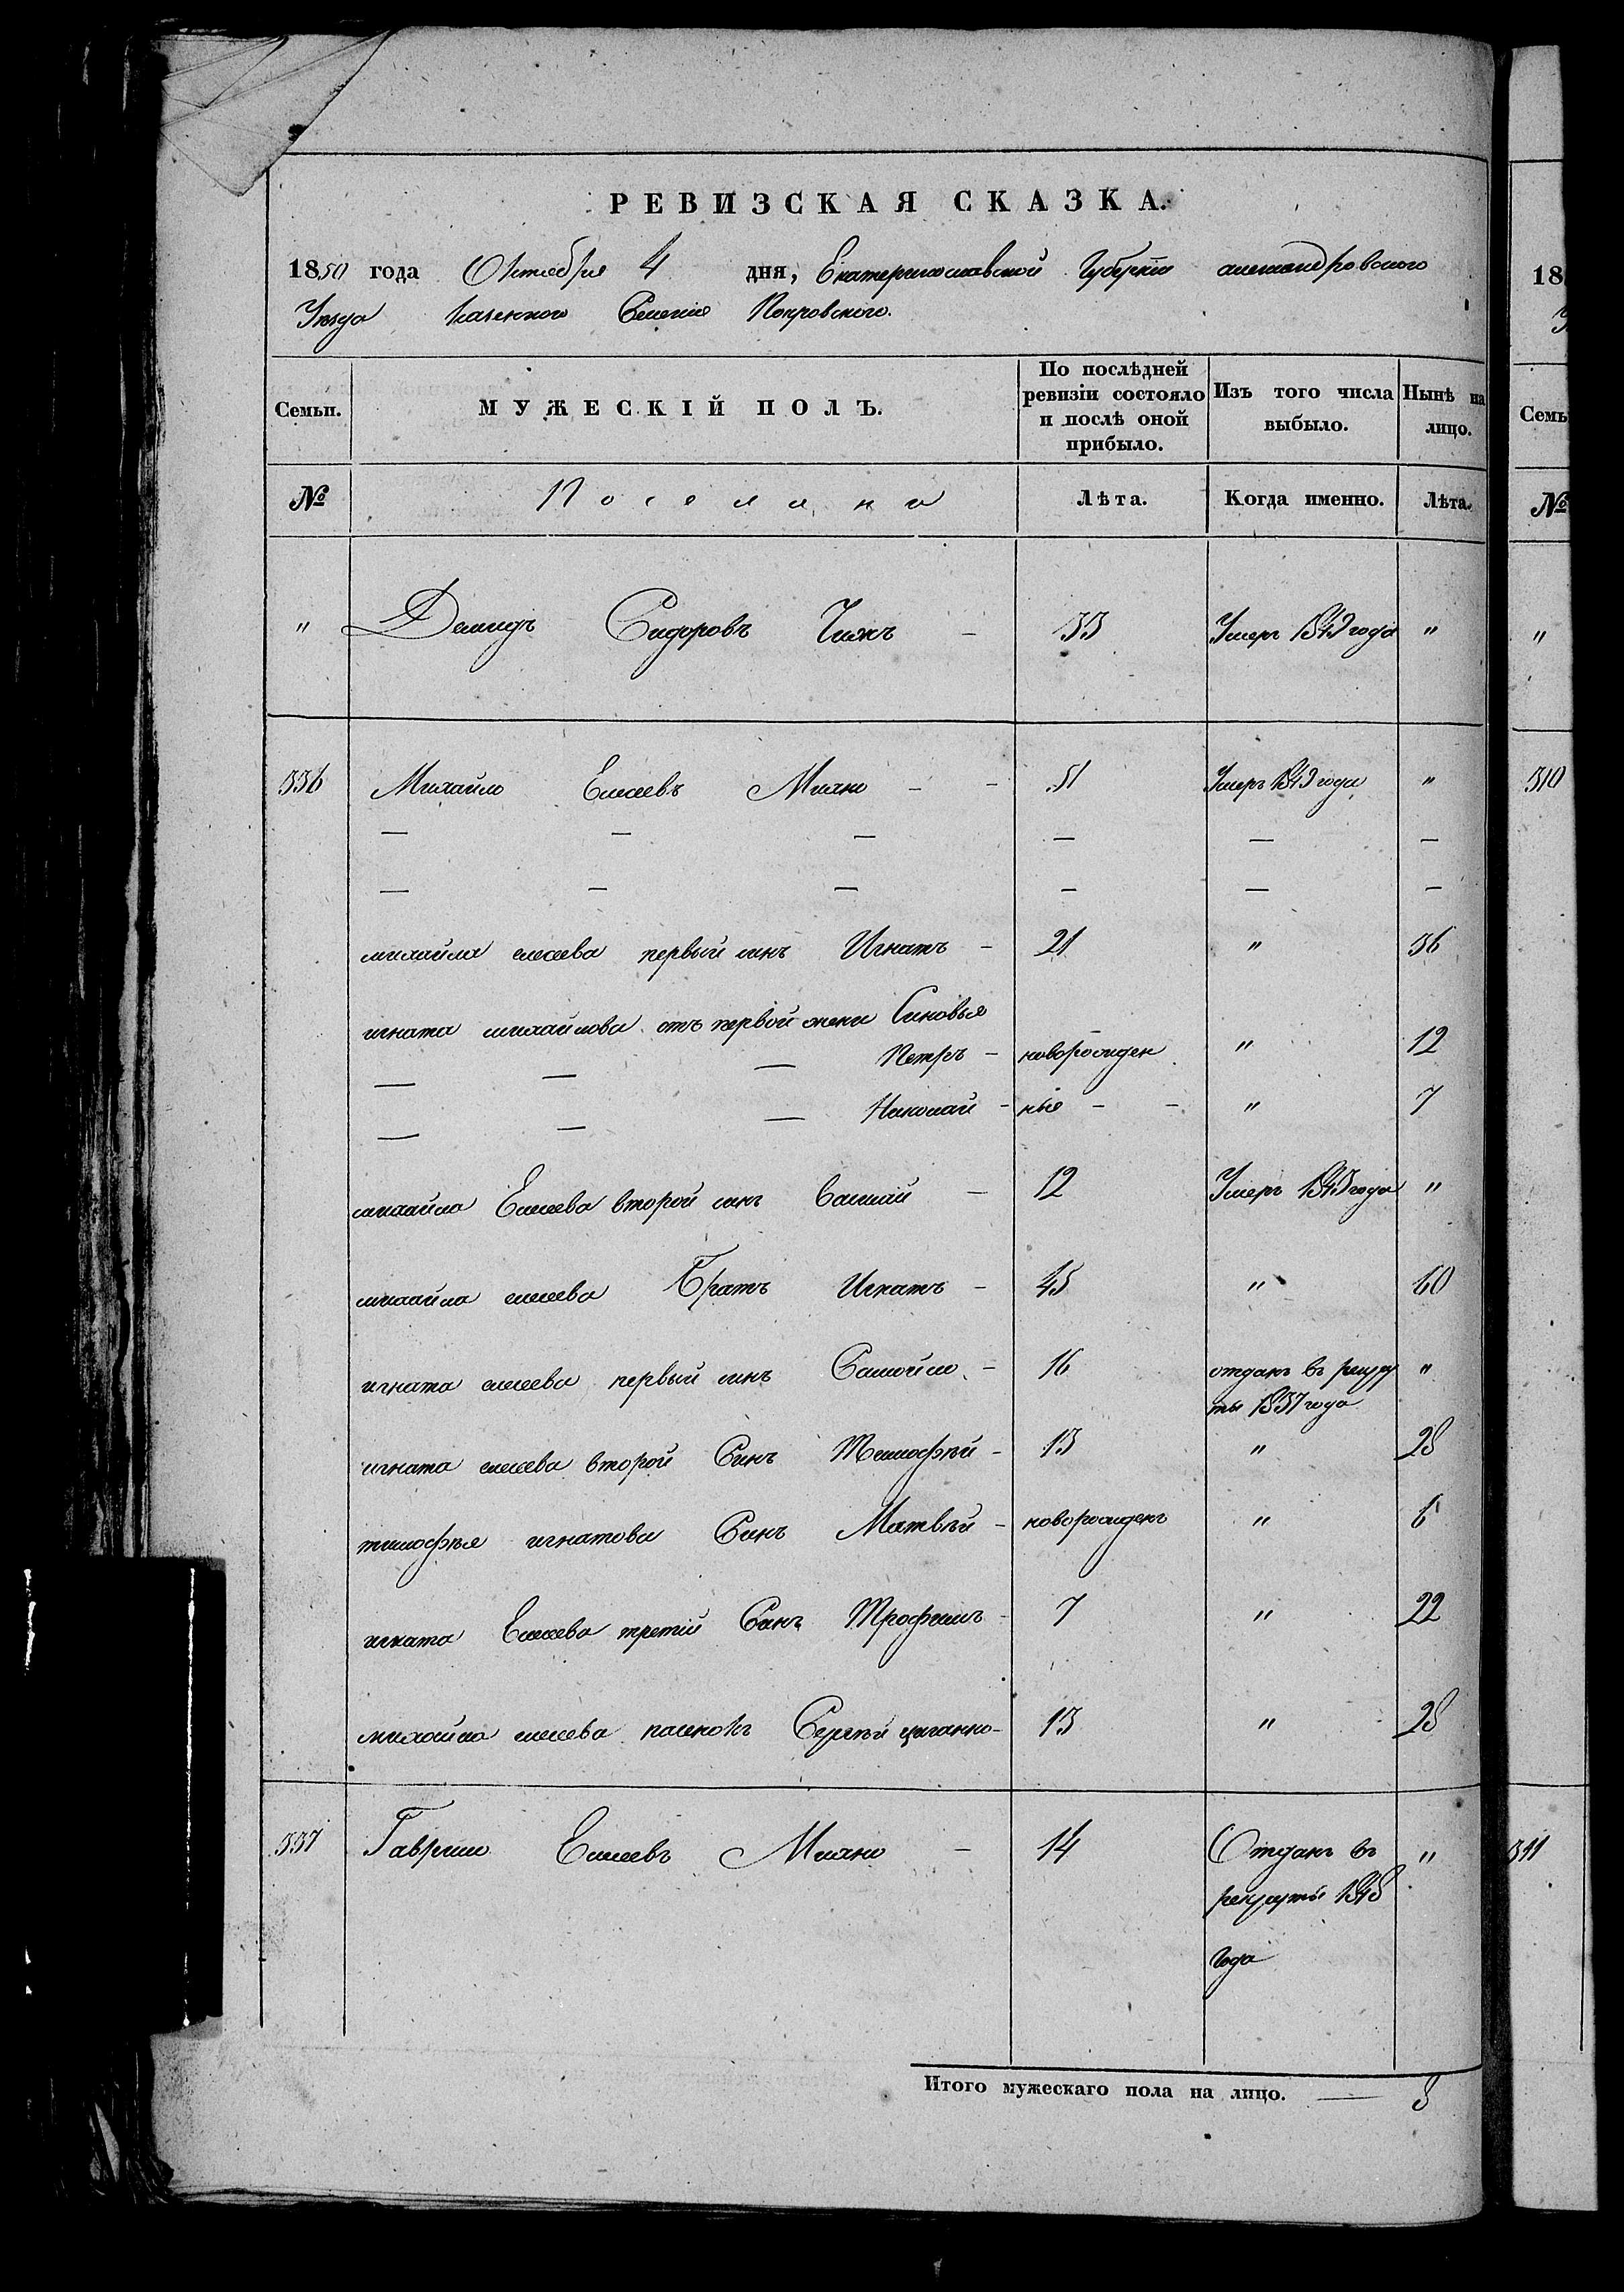 РЕВИЗСКАЯ СКАЗКА.
1850 года Октября 4 дня, Екатеринославской Губерніи александровского
Уезда казенного Селенія Покровского.
Семьи. МУЖЕСКІЙ ПОЛЪ. По послѣдней ревизіи состояло и послѣ оной прибыло. Изъ того числа выбыло. Нынѣ на лицо.
№ Поселяни Лѣта. Когда именно. Лѣта.
" Демидъ Сидоровъ Чижъ - 33 Умеръ 1849 года "
336 Михайло Елесеевъ Михно - - 51 Умеръ 1849 года "
— — — — — —
— — — — — —
михайла елесева первый синъ Игнатъ - 21 " 36
игната михайлова отъ первой жени Синовья
— — — Петръ - новорожден " 12
— — — Николай - ніе - - " 7
михайла Елесева второй синъ - 12 Умеръ года "
михайла елесева Братъ Игнатъ - 45 " 60
игната елесева первый синъ Самойло - 16 отданъ въ рекру "
ты 1837 года
игната елесева второй Синъ Тимофѣй - 13 " 28
тимофея игнатова Синъ Матвѣй - новорожденъ " 6
игната Елесева третій Синъ Трофимъ - 7 " 22
михайла елесева пасенокъ Сергѣй циганко - 13 " 28
337 Гаврило Елесеевъ Михно - 14 Отданъ въ "
рекруты 1848
года
Итого мужескаго пола на лицо. — 8
18
Семь
№
"
310
311